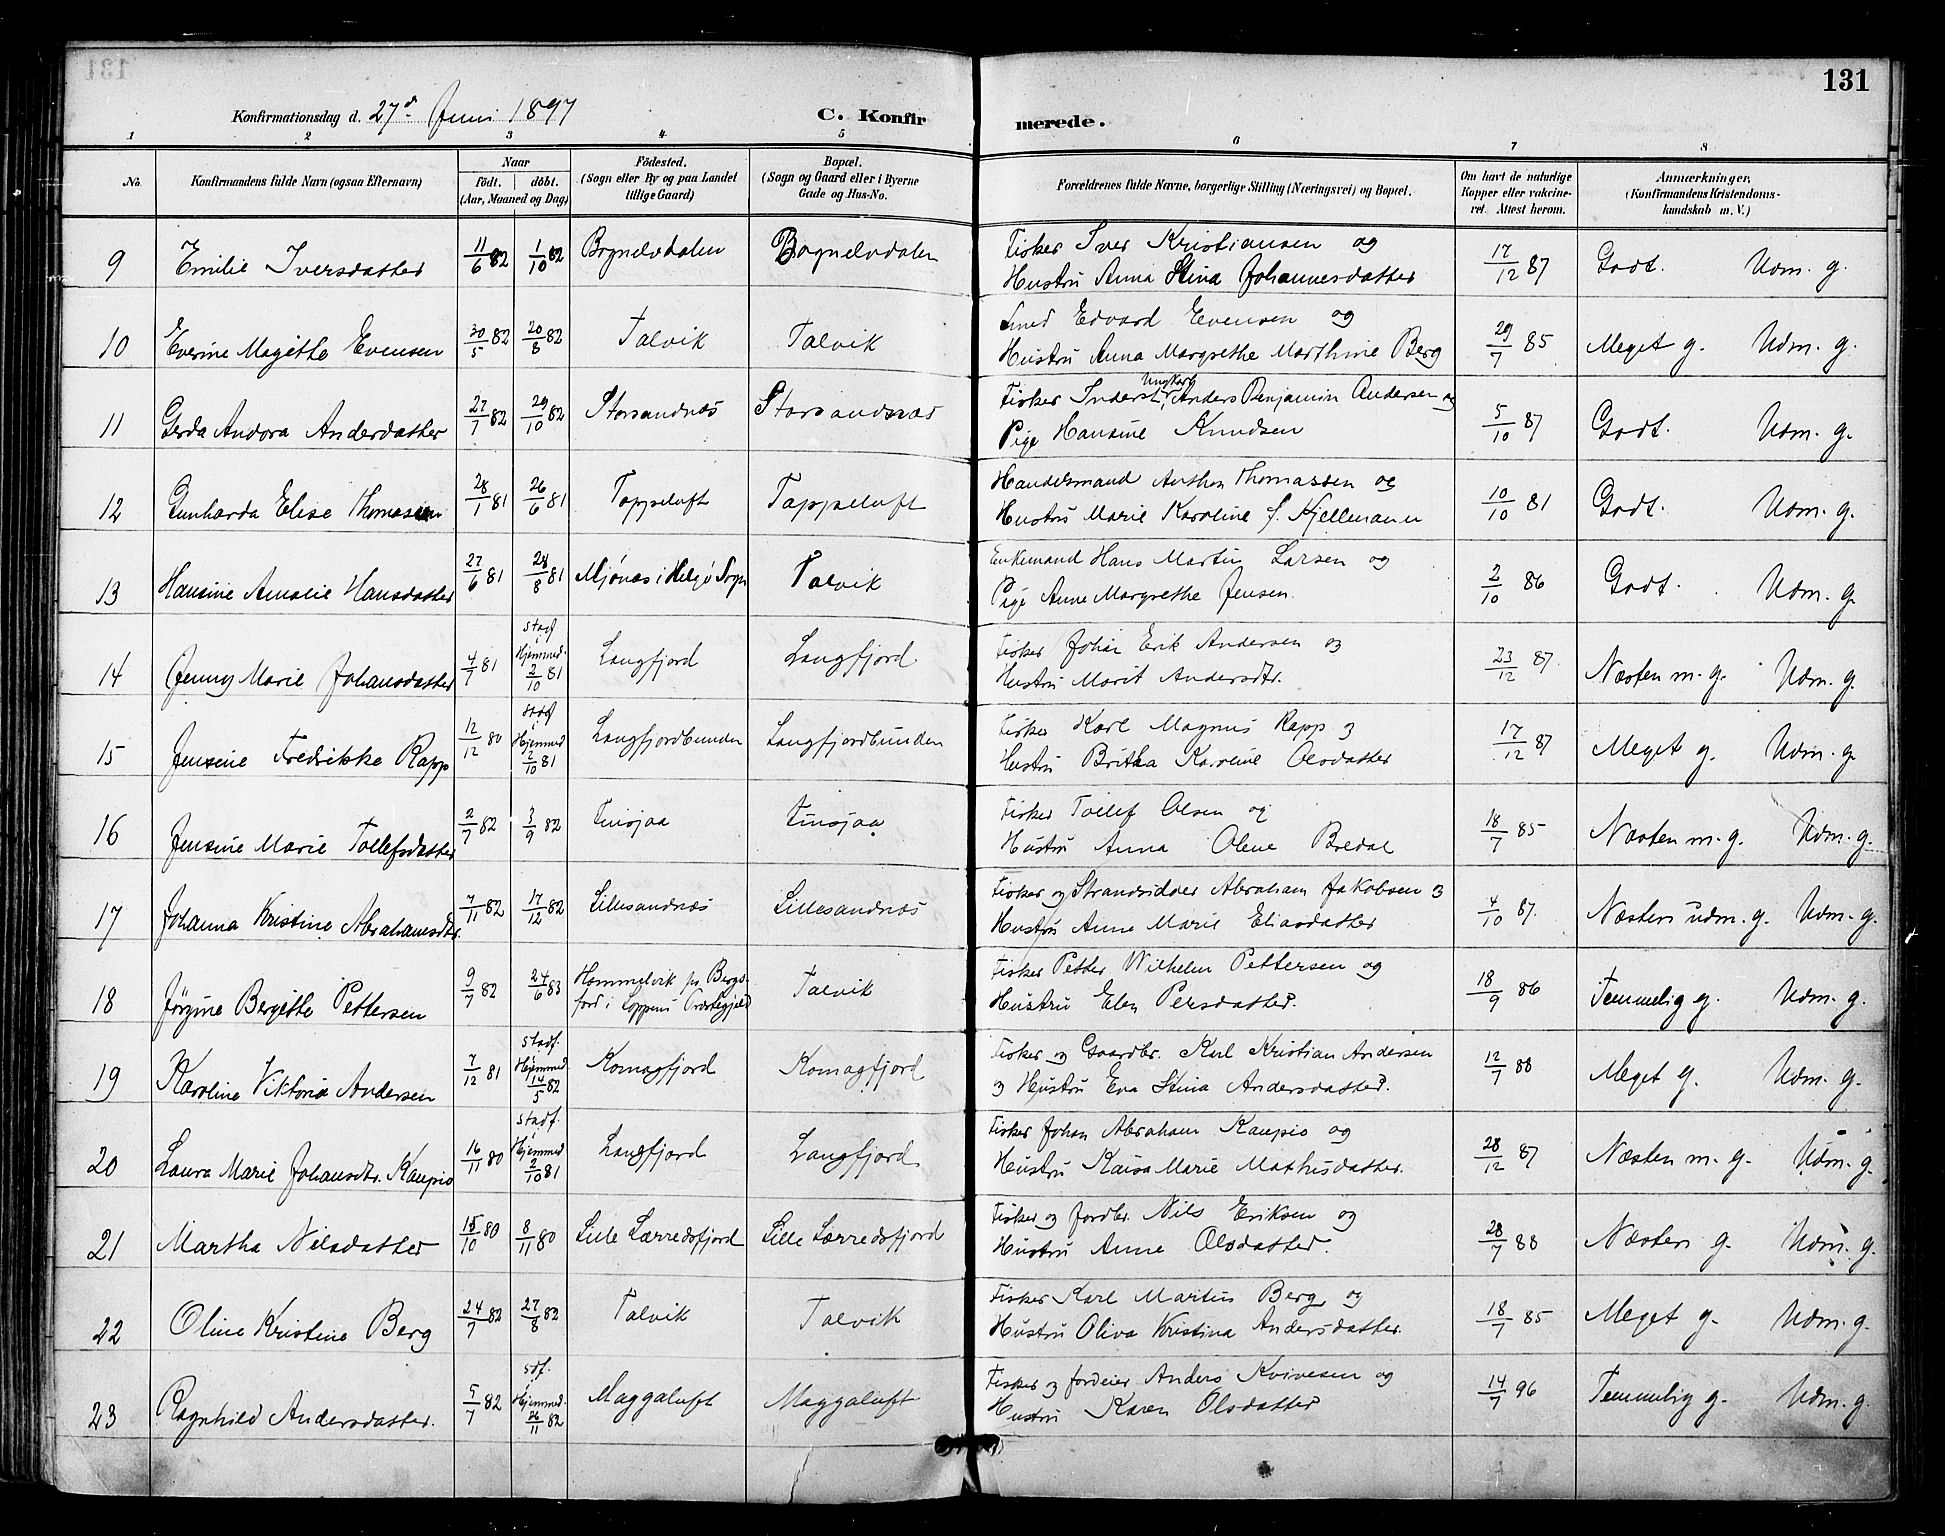 131
Konfirmationsdag d. 27d Juni 1897
C. Konfirmerede.
1 2 3 4 5 6 7 8
No.
Konfirmandens fulde Navn (ogsaa Efternavn)
Naar
födt. döbt.
(Aar, Maaned og Dag)
Födested.
(Sogn eller By og paa Landet
tillige Gaard)
Bopæl.
(Sogn og Gaard eller i Byerne
Gade og Hus-No.
Forældrenes fulde Navne, borgerlige Stilling (Næringsvei) og Bopæl.
Om havt de naturlige
Kopper eller vakcine-
ret. Attest herom.
Anmærkninger,
(Konfirmandens Kristendoms-
kundskab m. V.)
9 Emilie Iversdatter 11/6 82 1/10 82 Bognelvdalen Bognelvdalen
Fisker Iver Kristiansen og
Hustru Anna Stina Johannesdatter 17/12 87 Godt. Udm. g.
10 Everine Magitte Evensen 30/5 82 20/8 82 Talvik Talvik
Smed Edvard Evensen og
Hustru Anna Margrethe Marthine Berg 29/7 85 Meget g. Udm. g.
11 Gerda Andora Anderdatter 27/7 82 29/10 82 Storsandnæs Storsandnæs
Ungkarl
Fisker Inderst Anders Benjamin Andersen og
Pige Hansine Knudsen 5/10 87 Godt. Udm. g.
12 Gunharda Elise Thomassen 28/1 81 26/6 81 Toppeluft Tappeluft
Handelsmand Anthon Thomassen og
Hustru Marie Karoline f. Kjellmann 10/10 81 Godt. Udm. g.
13 Hansine Amalie Hansdatter 27/6 81 28/8 81 Mjónæs i Helgó Sogn Talvik
Enkemand Hans Martin Larsen og
Pige Anne Margrethe Jensen. 2/10 86 Godt. Udm. g.
14 Jenny Marie Johansdatter 4/7 81 stadf. i Hjemmed. 2/10 81 Langfjord Langfjord
Fisker Johan Erik Andersen og
Hustru Marit Andersdtr. 23/12 87. Næsten m. g. Udm. g.
15 Jensine Fredrikke Rapp 12/12 80 stadf i Hjemmed 2/10 81 Langfjordbunden Langfjordbunden
Fisker Karl Magnus Rapp og
Hustru Britha Karoline Olsdatter 17/12 87 Meget g. Udm. g.
16 Jensine Marie Tollefsdatter 2/7 82 3/9 82 Finsjaa Finsjaa
Fisker Tollef Olsen og
Hustru Anna Olene Bredal 18/7 85 Næsten m. g. Udm. g.
17 Johanna Kristine Abrahamsdtr. 7/11 82 17/12 82 Lillesandnæs Lillesandnæs
Fisker og Strandsidder Abraham Jakobsen og
Hustru Anne Marie Eliasdatter 4/10 87. Næsten udm. g. Udm. g.
18 Jörgine Bergitte Pettersen 9/7 82 24/6 83 Hammelvik pr. Bergs-
fjord i Loppens Præstegjeld Talvik
Fisker Petter Wilhelm Pettersen og
Hustru Elen Persdatter. 18/9 86 Temmelig g. Udm. g.
19 Karoline Viktoria Andersen 7/12 81 stadf. Hjemmed. 14/5 82 Komagfjord Komagfjord
Fisker og Gaardbr. Karl Kristian Andersen
og Hustru Eva Stina Andersdatter. 12/7 88 Meget g. Udm. g.
20 Laura Marie Johansdtr. Kaupio 16/11 80 stadf. i Hjemmed 2/10 81 Langfjord Langfjord
Fisker Johan Abraham Kaupio og
Hustru Kaisa Marie Mathisdatter. 28/12 87 Næsten m. g. Udm. g.
21 Martha Nilsdatter 15/10 80 8/11 80 Lille Lærredsfjord Lille Lærredsfjord
Fisker og Jordbr. Nils Eriksen og
Hustru Anne Olsdatter. 28/7 88 Næsten g. Udm. g.
22 Oline Kristine Berg 24/7 82 27/8 82 Talvik Talvik
Fisker Karl Martus Berg og
Hustru Oliva Kristina Andersdatter. 18/7 85 Meget g. Udm. g.
23 Ragnhild Andersdatter. 5/7 82 sdf. Hjemmed. 26/11 82 Maggaluft Maggaluft
Fisker og Jordeier Anders Kvivesen og
Hustru Karen Olsdatter 14/7 96 Temmelig g. Udm. g.